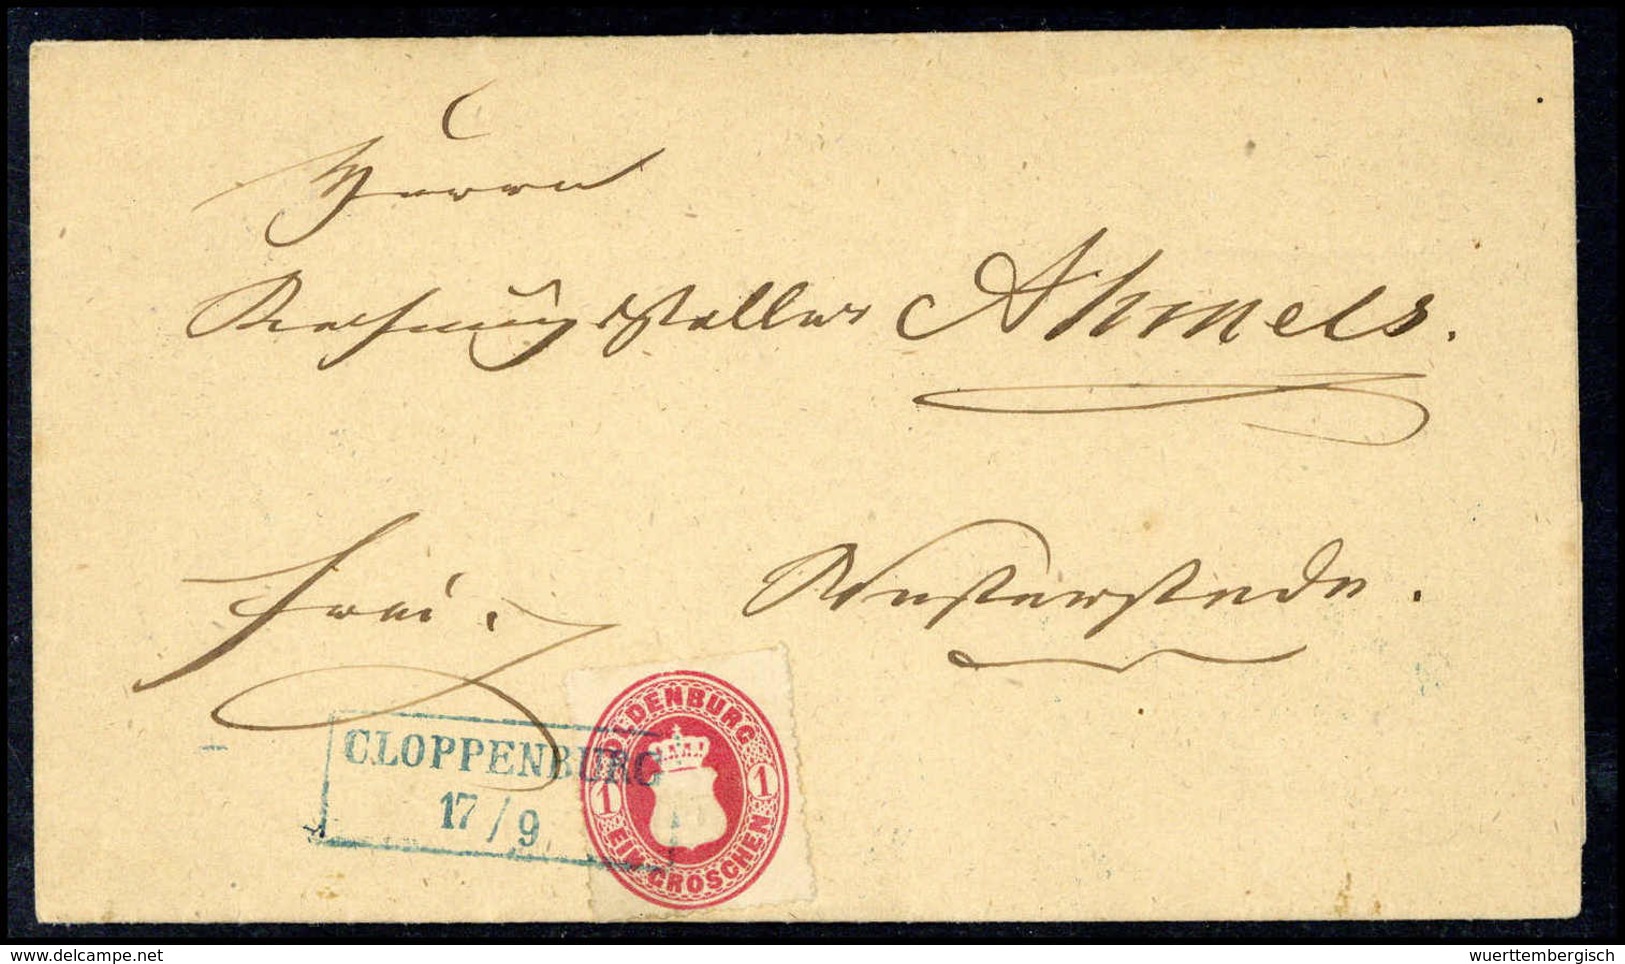 Herrn
Rechnungssteller Ahmels.
Frei.
Westerstede.
CLOPPENBURG
17/9
OLDENBURG
1 1
EIN GROSCHEN
www.delcampe.net
wuerttembergisch